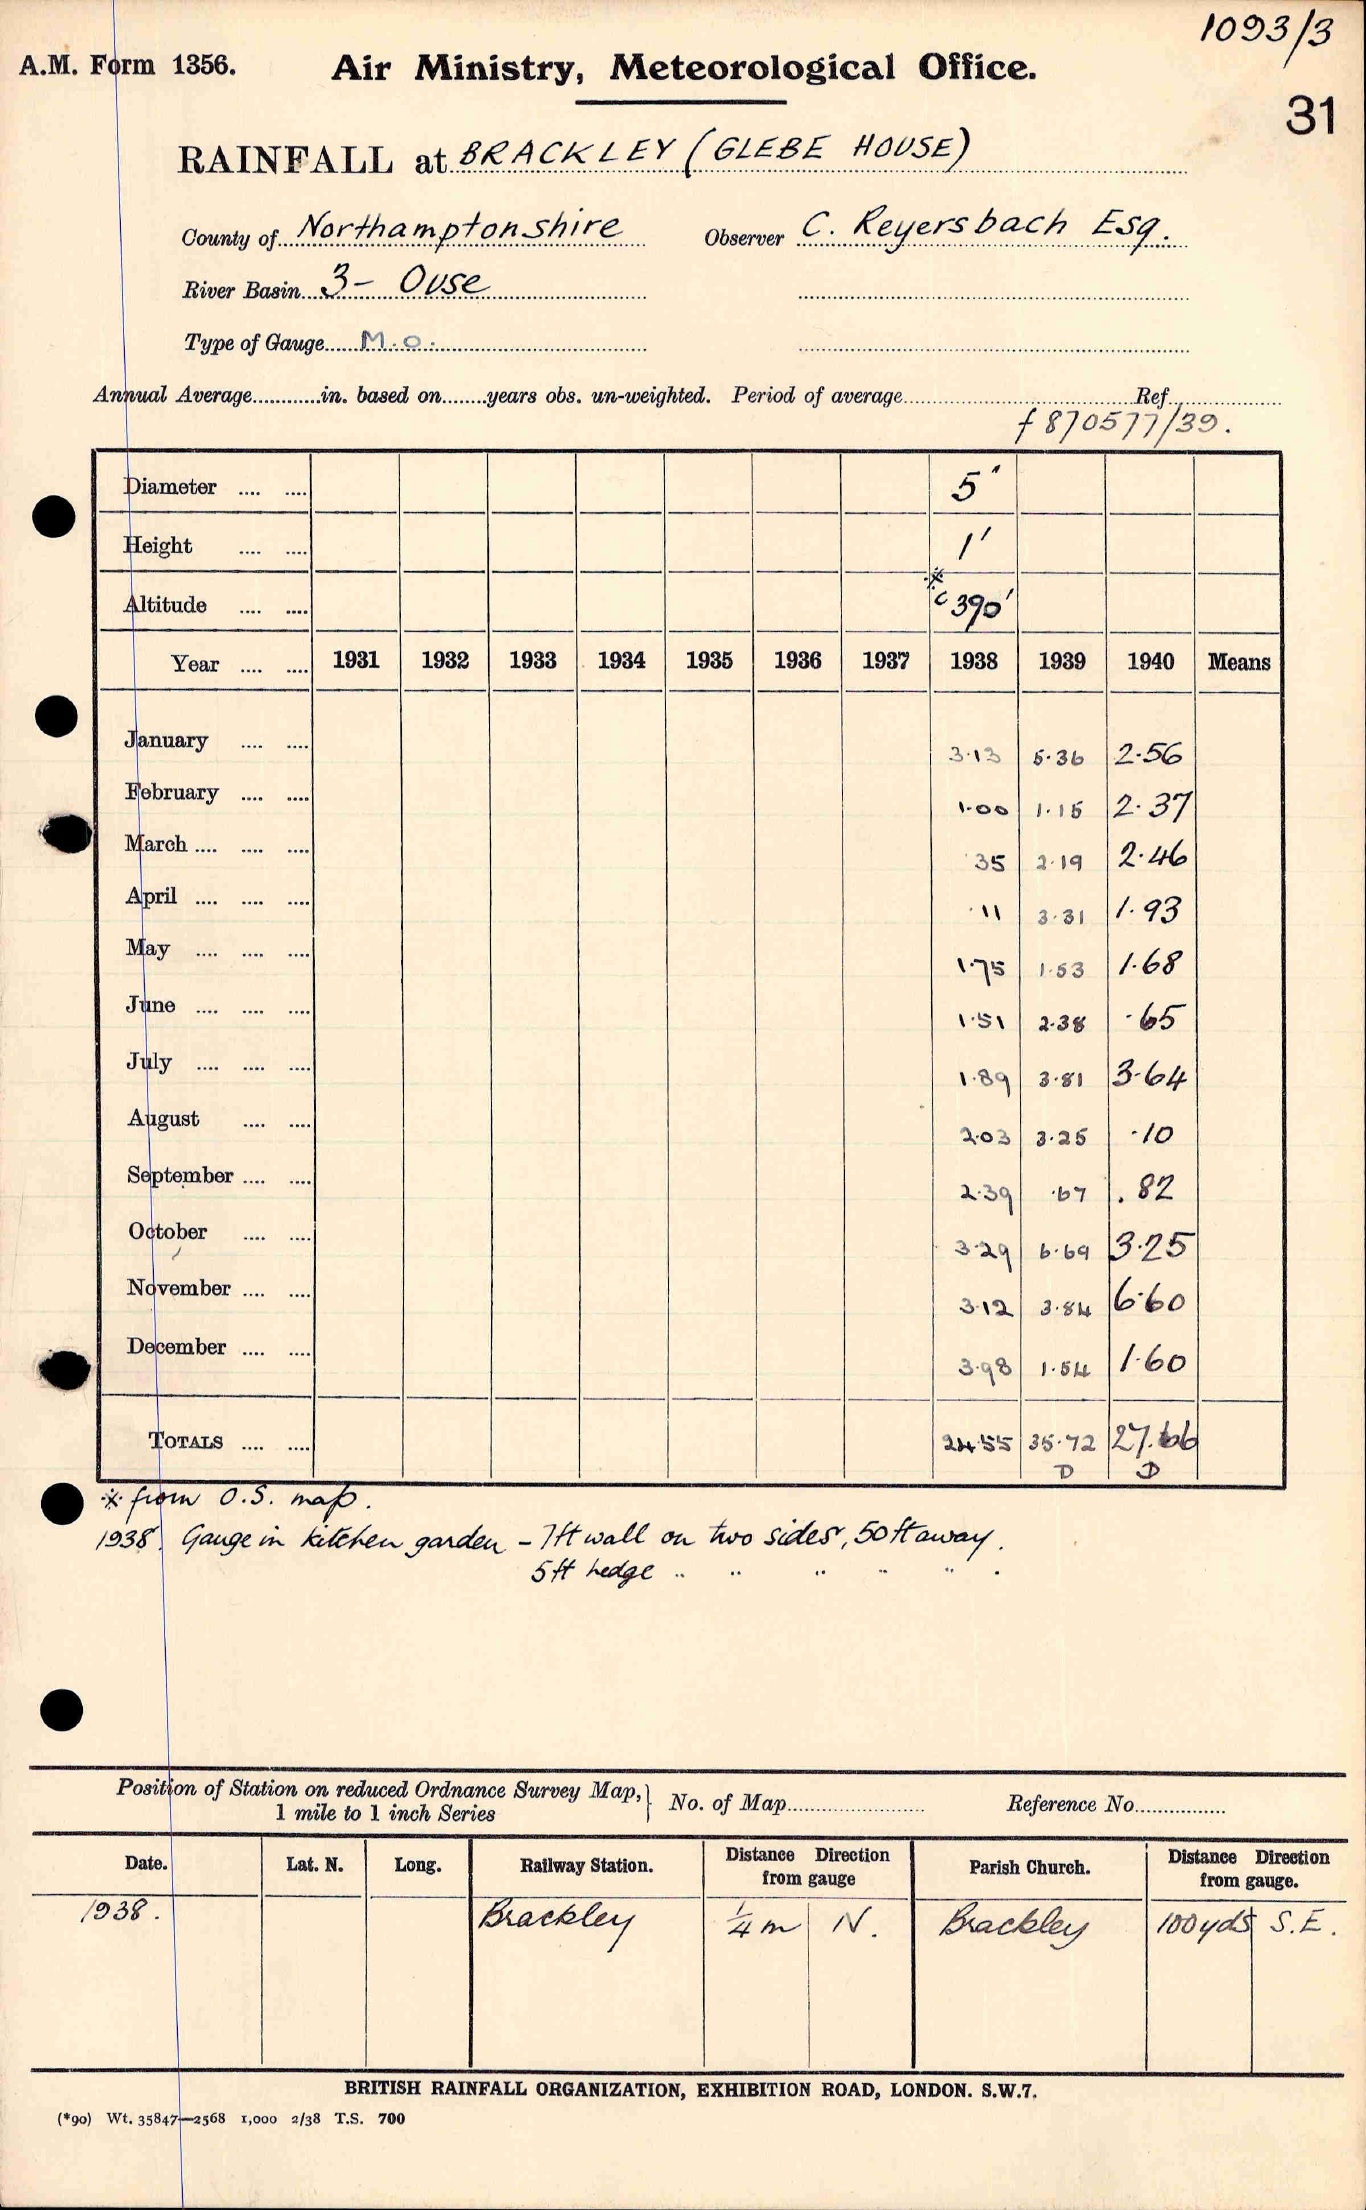 1093/3
A.M. Form 1356. Air Ministry, Meteorological Office.
31
RAINFALL at BRACKLEY (GLEBE HOUSE)
County of Northamptonshire Observer C. Reyersbach Esq.
River Basin 3- Ouse
Type of Gauge M.O.
Annual Average in. based on years obs. un-weighted. Period of average Ref
f 870577/39.
Diameter 5"
Height 1'
Altitude * c 390'
Year 1931 1932 1933 1934 1935 1936 1937 1938 1939 1940 Means
January 3.13 5.36 2.56
February 1.00 1.15 2.37
March .35 2.19 2.46
April .11 3.31 1.93
May 1.75 1.53 1.68
June 1.51 2.38 .65
July 1.89 3.81 3.64
August 2.03 3.25 .10
September 2.39 .67 .82
October 3.29 6.69 3.25
November 3.12 3.84 6.60
December 3.98 1.54 1.60
TOTALS 24.55 35.72 27.66
D D
* from O.S. map.
1938. Gauge in kitchen garden - 7ft wall on two sides, 50ft away.
5ft hedge " " " " " .
Position of Station on reduced Ordnance Survey Map, 1 mile to 1 inch Series } No. of Map Reference No.
Date. Lat. N. Long. Railway Station. Distance Direction from gauge Parish Church. Distance Direction from gauge.
1938. Brackley 1/4 m N. Brackley 100yds S.E.
BRITISH RAINFALL ORGANIZATION, EXHIBITION ROAD, LONDON. S.W.7.
(*90) Wt. 35847—2568 1,000 2/38 T.S. 700